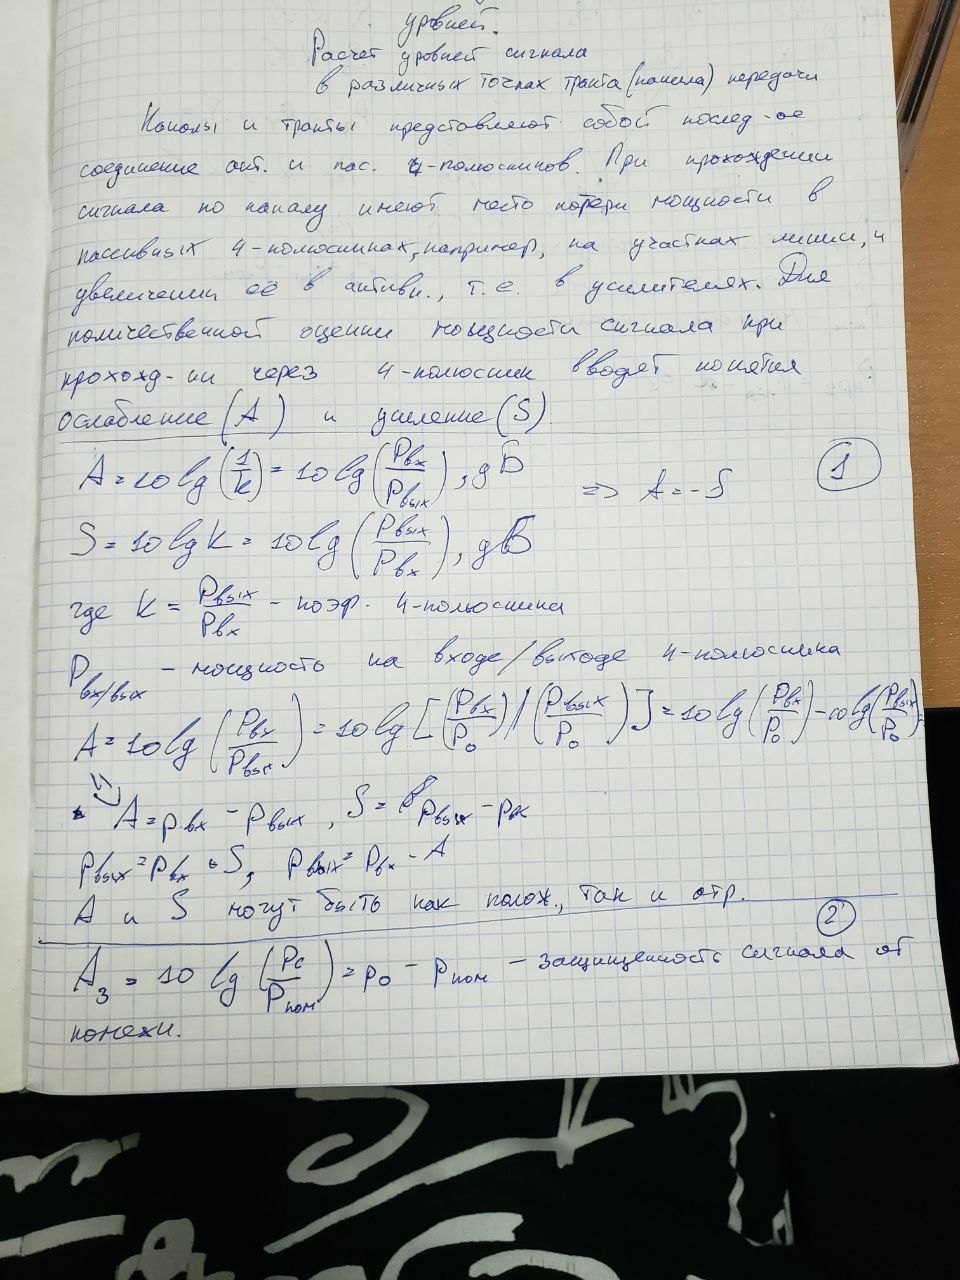 уровней.
Расчет уровней сигнала
в различных точках тракта (канала) передачи
Каналы и тракты представляют собой послед-ое
соединение акт. и пас. 4-полюсников. При прохождении
сигнала по каналу имеют место потери мощности в
пассивных 4-полюсниках, например, на участках линии, и
увеличении её в активн., т.е. в усилителях. Для
количественной оценки мощности сигнала при
прохожд-ии через 4-полюсник вводят понятия
ослабление (A) и усиление (S).
A = 10 lg (1/k) = 10 lg (Pвх/Pвых), дБ => A = -S 1
S = 10 lg k = 10 lg (Pвых/Pвх), дБ
где k = Pвых/Pвх - коэф. 4-полюсника
Pвх/вых - мощность на входе/выходе 4-полюсника
A = 10 lg (Pвх/Pвых) = 10 lg [(Pвх/P0) / (Pвых/P0)] = 10 lg (Pвх/P0) - 10 lg (Pвых/P0) =
A = pвх - pвых, S = pвых - pвх
pвых = pвх + S, pвых = pвх - A
A и S могут быть как полож., так и отр.
2
Aз = 10 lg (Pс/Pпом) = p0 - pпом - защищенность сигнала от
помехи.